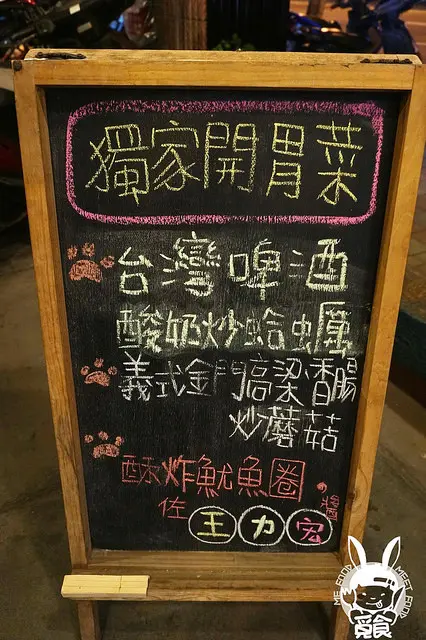 獨家開胃菜
台灣啤酒
酸奶炒蛤蛎
義式金門高粱香腸
炒蘑菇
酥炸魷魚圈
佐 王力宏
ME FOOD MEET FOOD
覓食